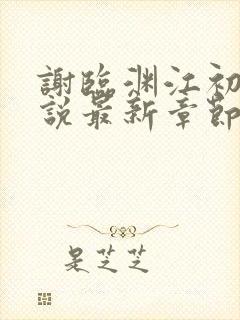 謝臨渊江初
説最新章節
是芝芝